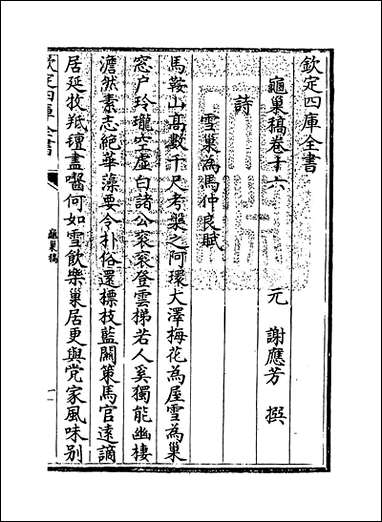 欽定四庫全書
龜巢稿卷十六
元 謝應芳 撰
詩
雪巢為馬仲良賦
馬鞍山髙數千尺考槃之阿環大澤梅花為屋雪為巢
窓户玲瓏空虚白諸公衮衮登雲梯若人奚獨能幽棲
澹然素志絶華藻要令朴俗還標技藍關策馬官遠謫
居延牧羝氊盡齧何如雪飲樂巢居更與党家風味别
欽定四庫全書
龜巢稿
一